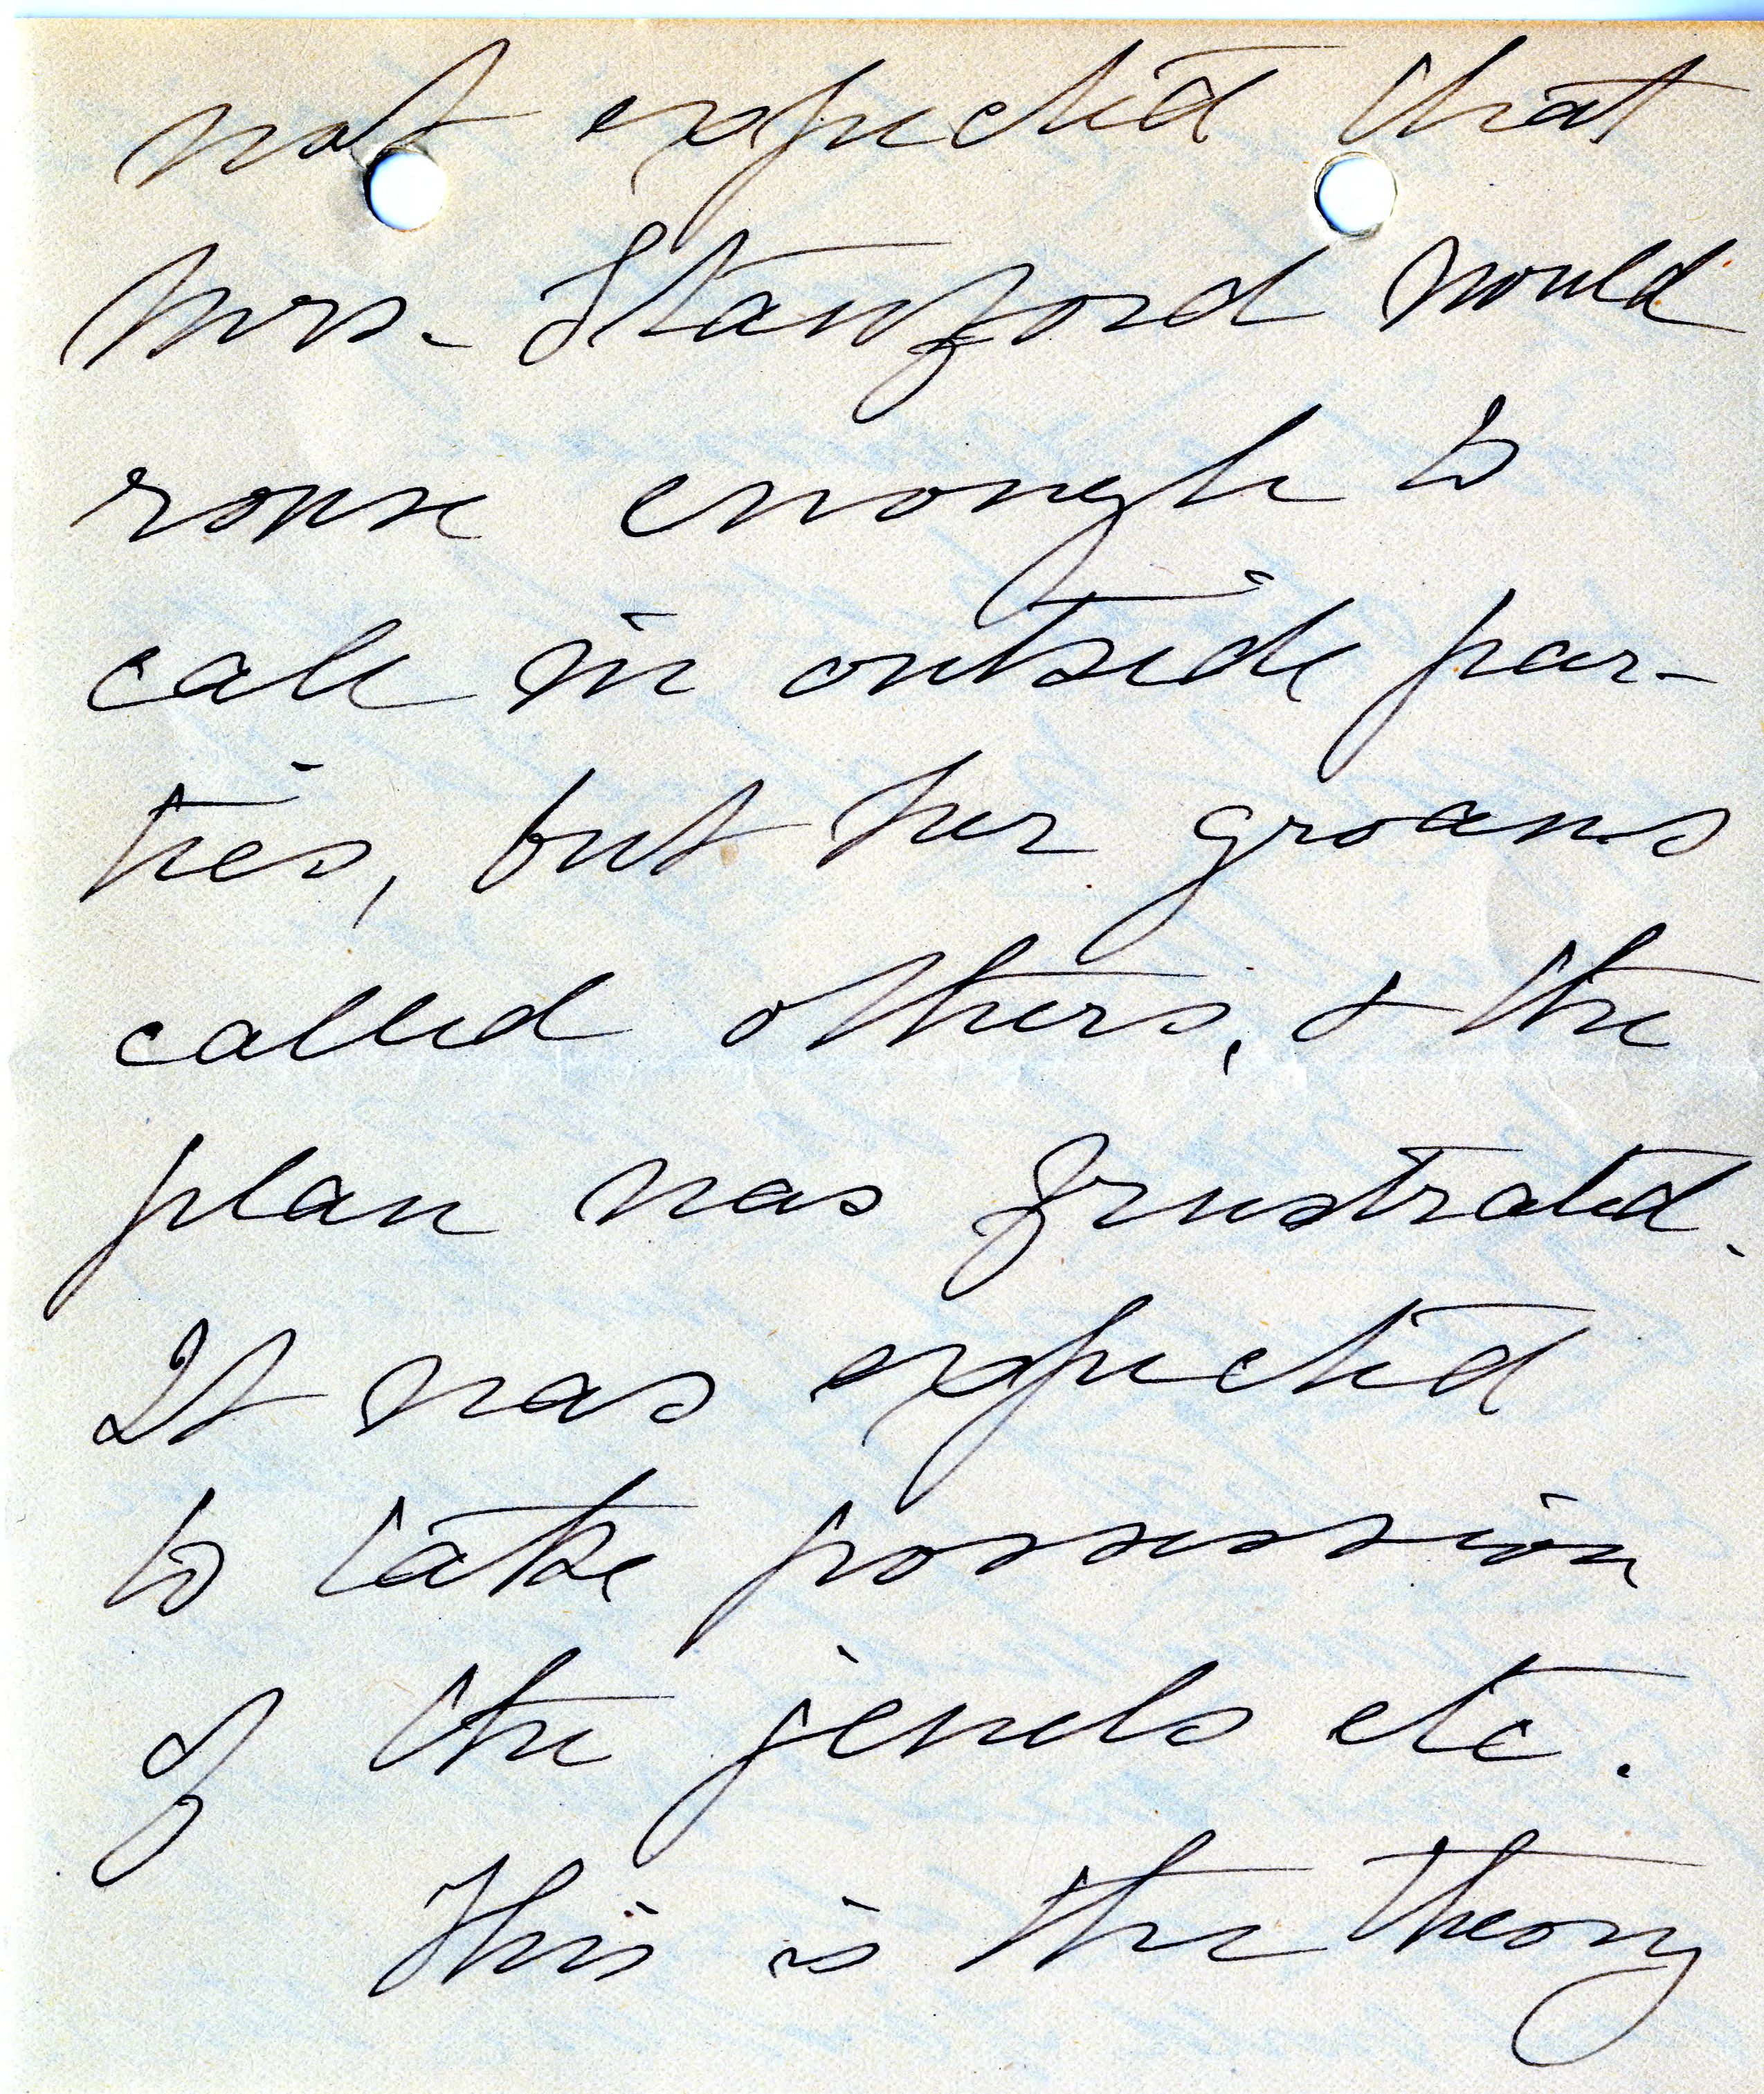 not expected that
Mrs. Stanford would
rouse enough to
call in outside par-
ties, but her groans
called others, & the
plan was frustrated.
It was expected
to take possession
of the jewels etc.
This is the theory